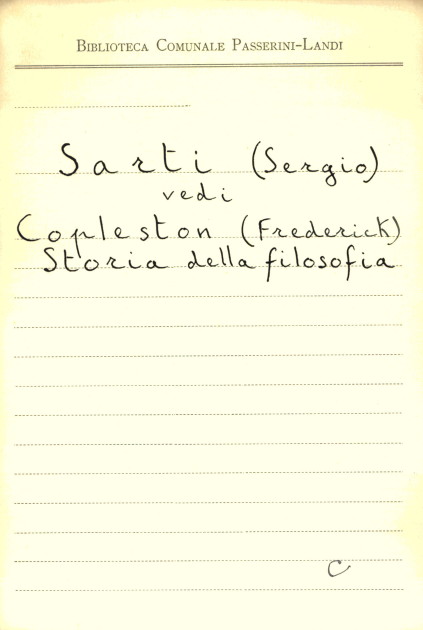 Biblioteca Comunale Passerini-Landi
Sarti (Sergio)
vedi
Copleston (Frederick)
Storia della filosofia
C